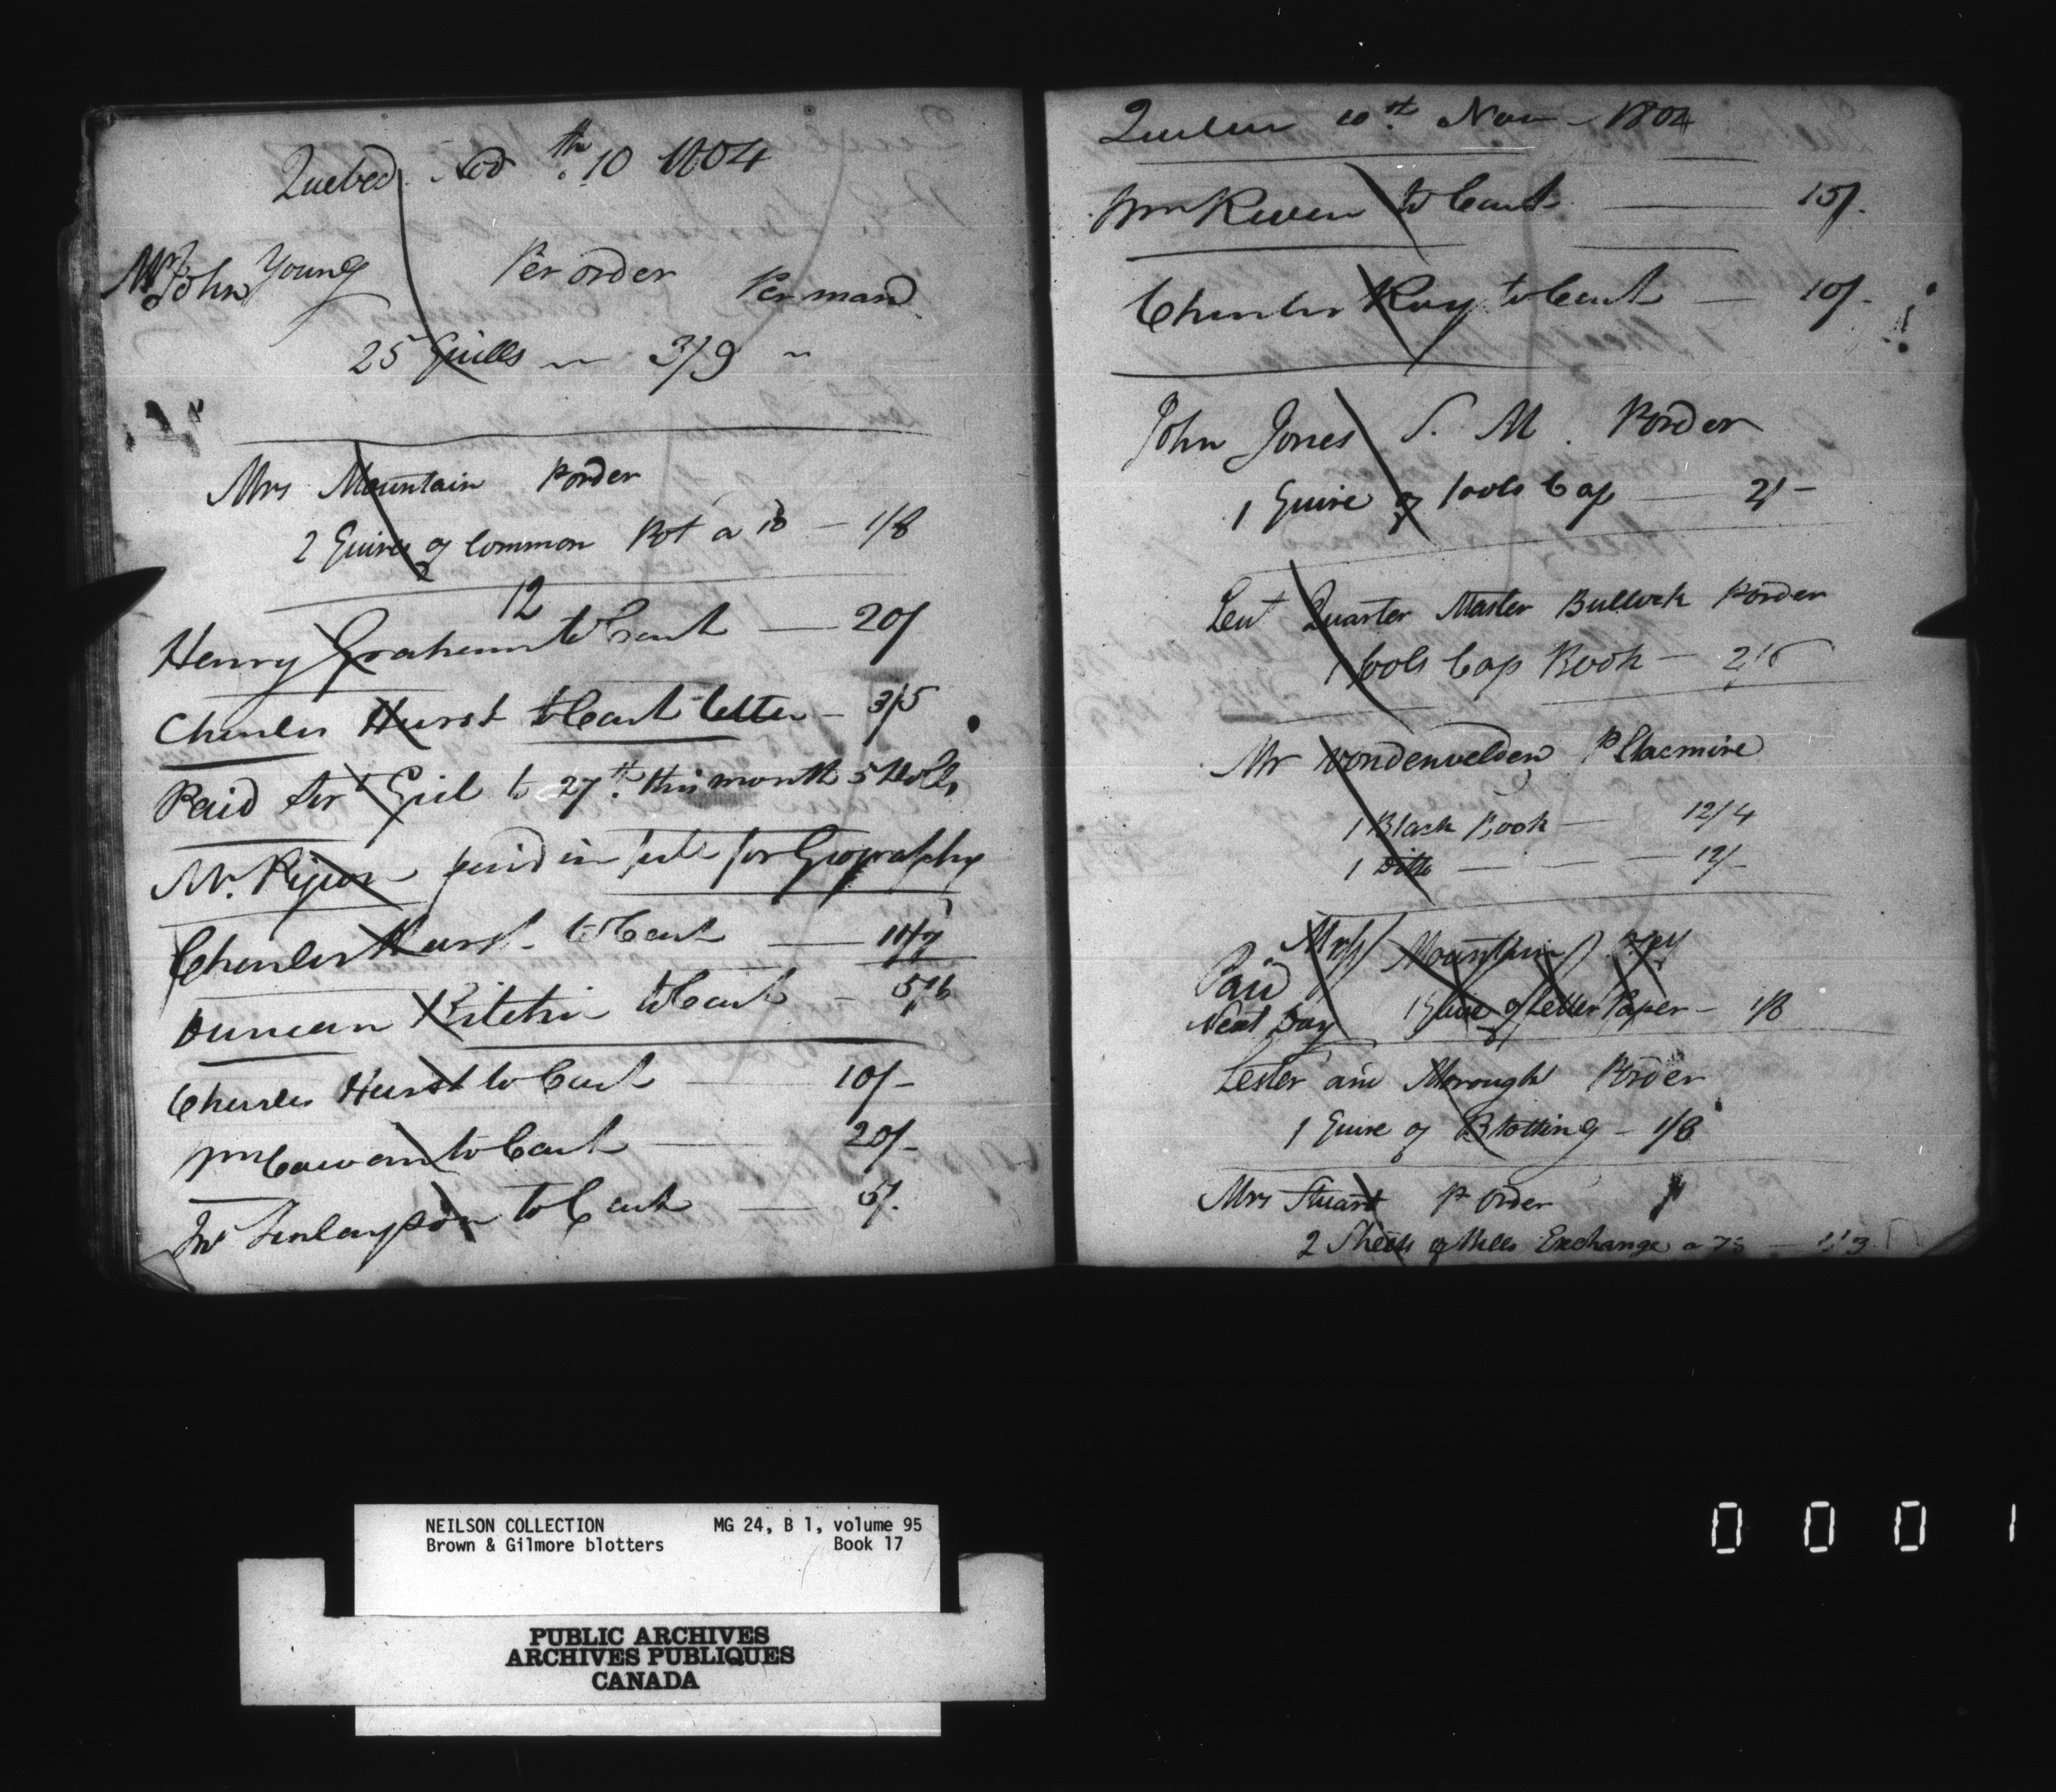 Quebec Nov th 10 1804
Mr John Young Per order Per man
25 Quills 3/9
Mrs Mountain P order
2 Quires of Common Pot a 10 — 1/8
12
Henry Graham to Cash — 20/
Charles Hurst to Cash letter — 3/5
Paid for Girl to 27th this month 5 Dolls
Mr. paid in full for Geography
Charles Hurst to Cash —
Duncan Ritchie to Cash — 5/6
Charles Hurst to Cash — 10/-
Wm Cowan to Cash — 20/-
Jno Finlayson to Cash — 5/.
Quebec 10th Nov 1804
Wm to Cash — 15/.
Charles Roy to Cash — 10/-
John Jones S. M. P order
1 Quire of fools Cap — 2/-
Leut Quarter Master Bullock P order
1 fools Cap Book — 2/6
Mr Vondenvelden P
1 Black Book — 12/4
1 Ditto — 12/-
Mrs Mountain P
Paid
Next Day 1 Quire of Letter Paper — 1/8
Lester and Morrogh P order
1 Quire of Blotting — 1/8
Mrs Stuart P order
2 Sheets of Bills Exchange a
0001
NEILSON COLLECTION MG 24, B 1, volume 95
Brown & Gilmore blotters Book 17
PUBLIC ARCHIVES
ARCHIVES PUBLIQUES
CANADA